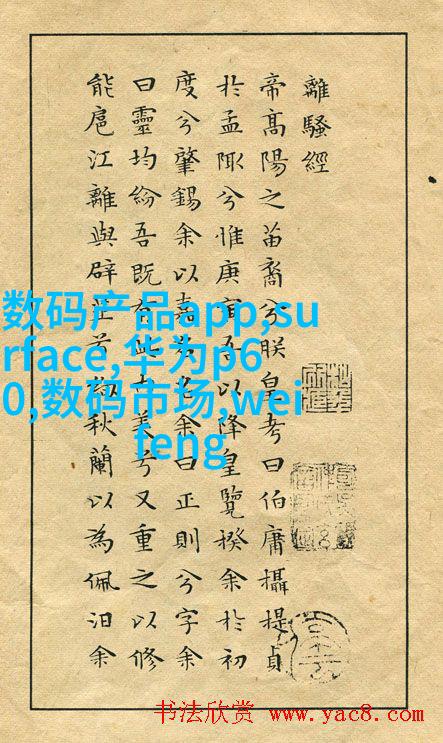 離騷經
帝高陽之苗裔兮朕皇考曰伯庸攝提貞
於孟陬兮惟庚寅吾以降皇覽揆余於初
度兮肇錫余以嘉名名余曰正則兮字余
曰靈均紛吾既有此內美兮又重之以修
能扈江離與辟芷兮紉秋蘭以為佩汨余
数码产品app,su
rface,华为p6
0,数码市场,wei
feng
书法欣赏 www.yac8.com